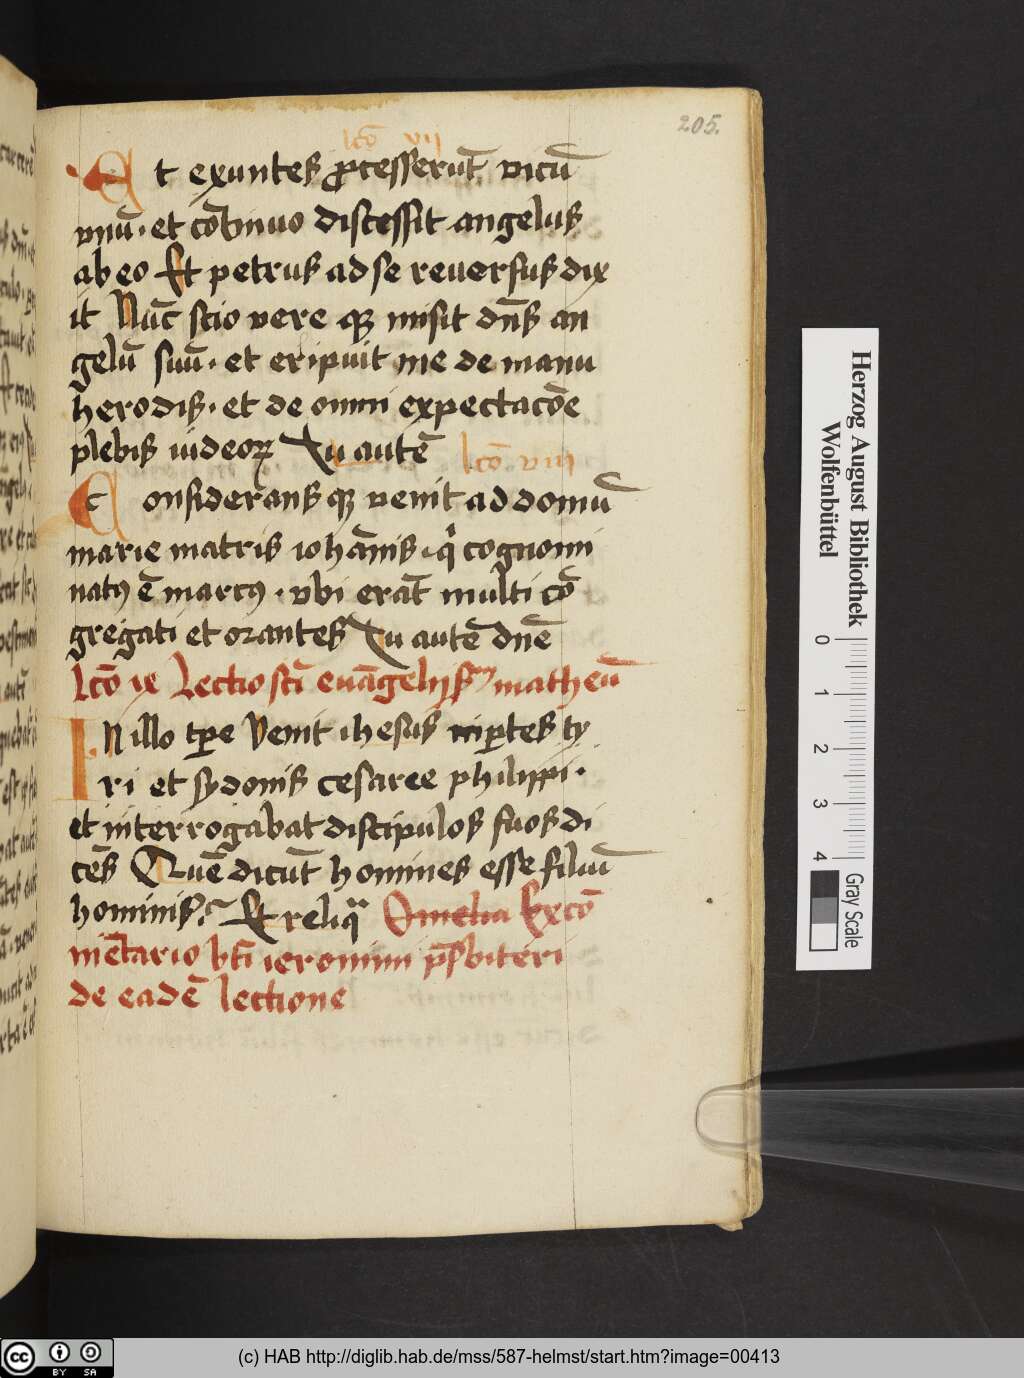 205.
lcō vii
Et exuntes ꝓcesserūt vicū
vnū · et cōtinuo discessit angelus
ab eo Et petrus ad se reuersus dix
it Nūc scio vere qꝫ misit dn̄s an
gelū suū · et eripuit me de manu
herodis · et de omni expectacōe
plebis iudeoꝝ Tu autē
lcō viii
Considerans qꝫ venit ad domū
marie matris iohānis · q̇ cognomi
natꝰ ē marcꝰ · vbi erāt multi cō
gregati et orantes Tu autē dn̄e
lcō ix Lectio scī euāgelij s matheū
In illo tꝑe Venit ihesus in ꝑtes ty
ri et sydonis cesaree philippi ·
et interrogabat discipulos suos di
cēs Quē dicūt homines esse filiū
hominis ? Et reliqᵃ Omelia Ex cō
mētario bt̄i ieronimi pr̄sbiteri
de eadē lectione
Herzog August Bibliothek
Wolfenbüttel
0 1 2 3 4
Gray Scale
cc BY SA
(c) HAB http://diglib.hab.de/mss/587-helmst/start.htm?image=00413